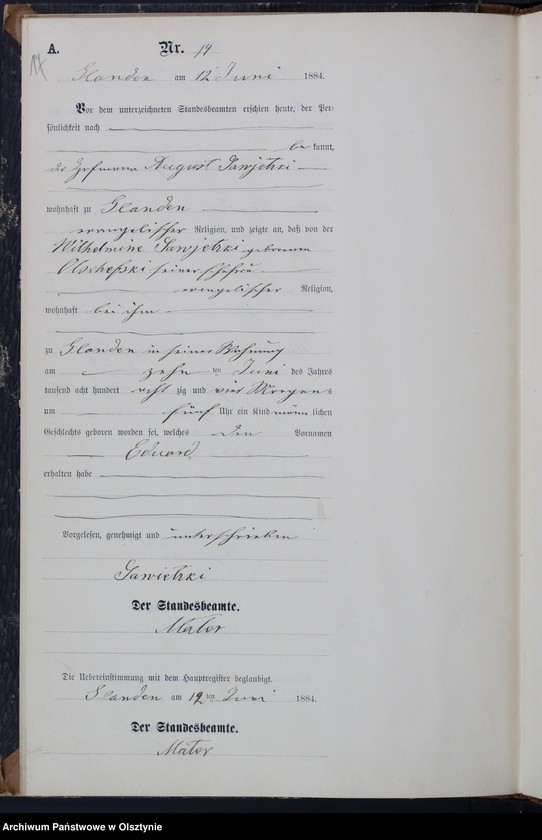 A. Nr. 14
14
Glanden am 12 Juni 1884.
Vor dem unterzeichneten Standesbeamten erschien heute, der Per-
sönlichkeit nach
be kannt,
der Hofmann August Sawjetzki
wohnhaft zu Glanden
evangelischer Religion, und zeigte an, daß von der
Wilhelmine Sawjetzki geborenen
Olschefski seiner Ehefrau
evangelischer Religion,
wohnhaft bei ihm
zu Glanden in seiner Wohnung
am zehn ten Juni des Jahres
tausend acht hundert acht zig und vier Morgens
um fünf Uhr ein Kind männ lichen
Geschlechts geboren worden sei, welches den Vornamen
Eduard
erhalten habe
Vorgelesen, genehmigt und unterschrieben
Sawietzki
Der Standesbeamte.
Mater
Die Uebereinstimmung mit dem Hauptregister beglaubigt.
Glanden am 12 ten Juni 1884.
Der Standesbeamte.
Mater
Archiwum Państwowe w Olsztynie